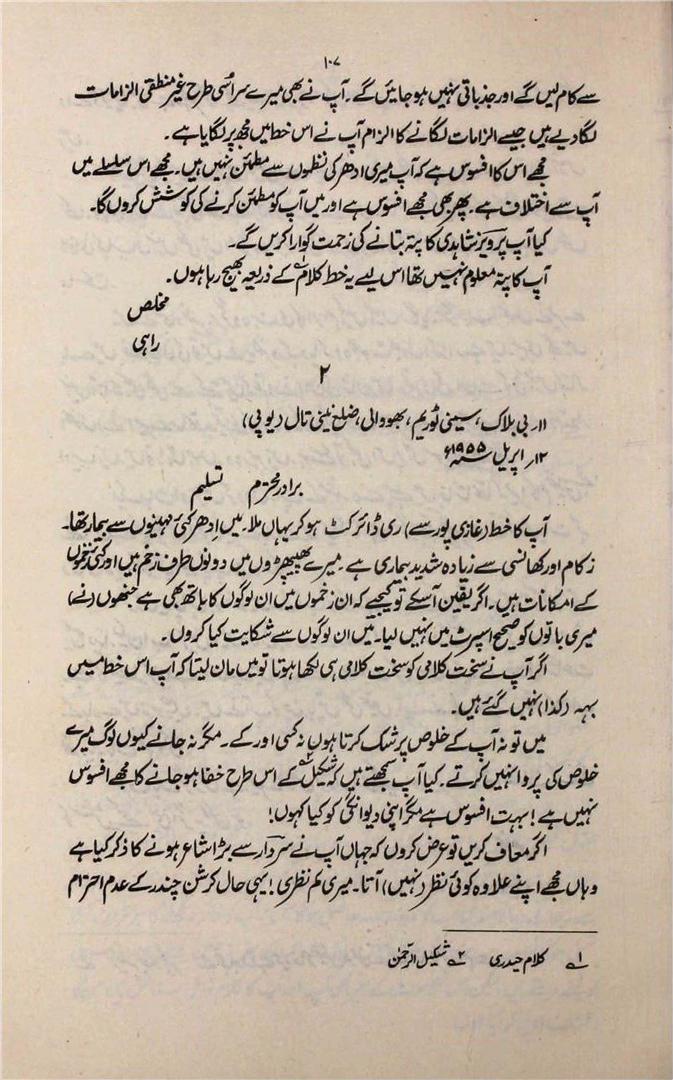 ۱۰۷
سے کام لیں گے اور جذباتی نہیں ہو جائیں گے۔ آپ نے بھی میرے سر اُسی طرح غیر منطقی الزامات
لگا دیے ہیں جیسے الزامات لگانے کا الزام آپ نے اس خط میں مجھ پر لگایا ہے۔
مجھے اس کا افسوس ہے کہ آپ میری ادھر کی نظموں سے مطمئن نہیں ہیں۔ مجھے اس سلسلے میں
آپ سے اختلاف ہے۔ پھر بھی مجھے افسوس ہے اور میں آپ کو مطمئن کرنے کی کوشش کروں گا۔
کیا آپ پرویز شاہدی کا پتہ بتانے کی زحمت گوارا کریں گے۔
آپ کا پتہ معلوم نہیں تھا اس لیے یہ خط کلام۱ کے ذریعہ بھیج رہا ہوں۔
مخلص
راہی
۲
۱۱۔ بی بلاک، سینی ٹوریم، بھووالی، ضلع نینی تال (یو پی)
۱۲؍ اپریل ۱۹۵۵ء
برادر محترم تسلیم
آپ کا خط (غازی پور سے) ری ڈائرکٹ ہو کر یہاں ملا۔ میں اِدھر کئی مہینوں سے بیمار تھا۔
زکام اور کھانسی سے زیادہ شدید بیماری ہے۔ میرے پھیپھڑوں میں دونوں طرف زخم ہیں اور کئی زخموں
کے امکانات ہیں۔ اگر یقین آسکے تو کیجیے کہ ان زخموں میں ان لوگوں کا ہاتھ بھی ہے جنھوں (نے)
میری باتوں کو صحیح اسپرٹ میں نہیں لیا۔ میں ان لوگوں سے شکایت کیا کروں۔
اگر آپ نے سخت کلامی کو سخت کلامی ہی لکھا ہوتا تو میں مان لیتا کہ آپ اس خط میں
بہہ (کذا) نہیں گئے ہیں۔
میں تو نہ آپ کے خلوص پر شک کرتا ہوں نہ کسی اور کے۔ مگر نہ جانے کیوں لوگ میرے
خلوص کی پروا نہیں کرتے۔ کیا آپ سمجھتے ہیں کہ شکیل۲ کے اس طرح خفا ہو جانے کا مجھے افسوس
نہیں ہے! بہت افسوس ہے مگر اپنی دیوانگی کو کیا کہوں!
اگر معاف کریں تو عرض کروں کہ جہاں آپ نے سردار سے بڑا شاعر ہونے کا ذکر کیا ہے
وہاں مجھے اپنے علاوہ کوئی نظر (نہیں) آتا۔ میری کم نظری! یہی حال کرشن چندر کے عدم احترام
۱ کلام حیدری ۲ شکیل الرحمٰن